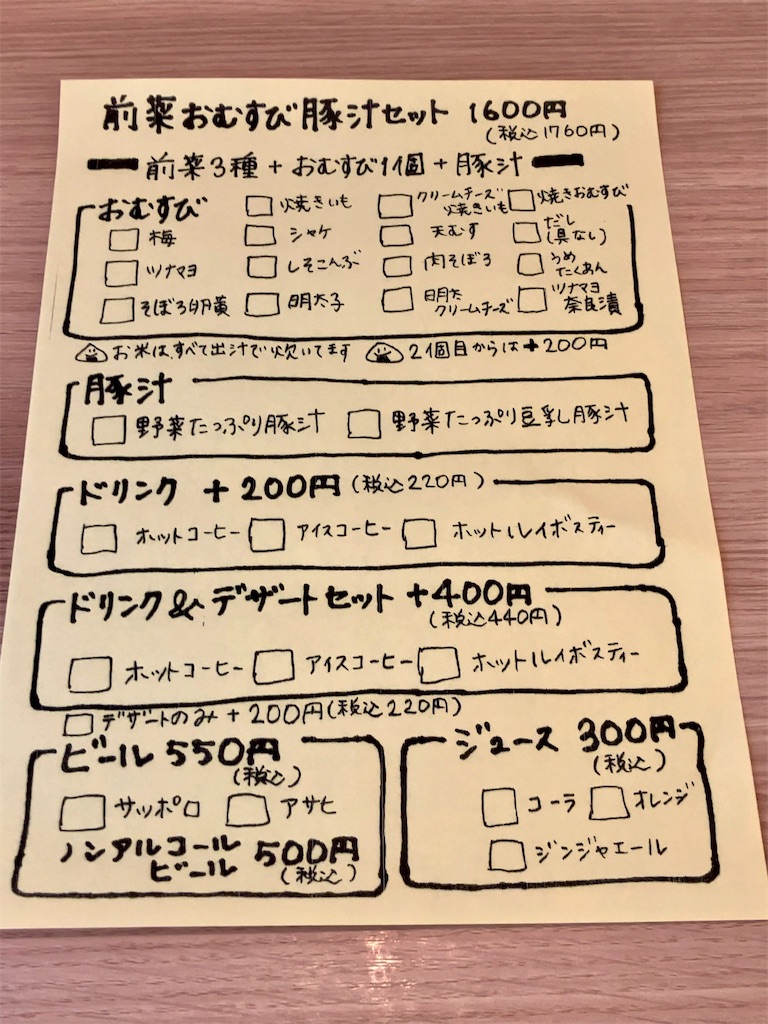 前菜おむすび豚汁セット 1600円
(税込1760円)
前菜3種 + おむすび1個 + 豚汁
おむすび
焼きいも
クリームチーズ
焼きいも
焼きおむすび
梅
シャケ
天むす
だし
(具なし)
ツナマヨ
しそこんぶ
肉そぼろ
うめ
たくあん
そぼろ卵黄
明太子
明太
クリームチーズ
ツナマヨ
奈良漬
お米はすべて出汁で炊いてます 2個目からは+200円
豚汁
野菜たっぷり豚汁 野菜たっぷり豆乳豚汁
ドリンク +200円(税込220円)
ホットコーヒー アイスコーヒー ホットルイボスティー
ドリンク&デザートセット +400円
(税込440円)
ホットコーヒー アイスコーヒー ホットルイボスティー
デザートのみ +200円(税込220円)
ビール 550円
(税込)
サッポロ アサヒ
ノンアルコール
ビール 500円
(税込)
ジュース 300円
(税込)
コーラ オレンジ
ジンジャエール